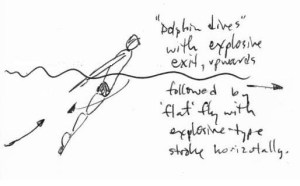 "Dolphin dives"
with explosive
exit, upwards
followed by
'flat' fly with
explosive-type
stroke horizontally.